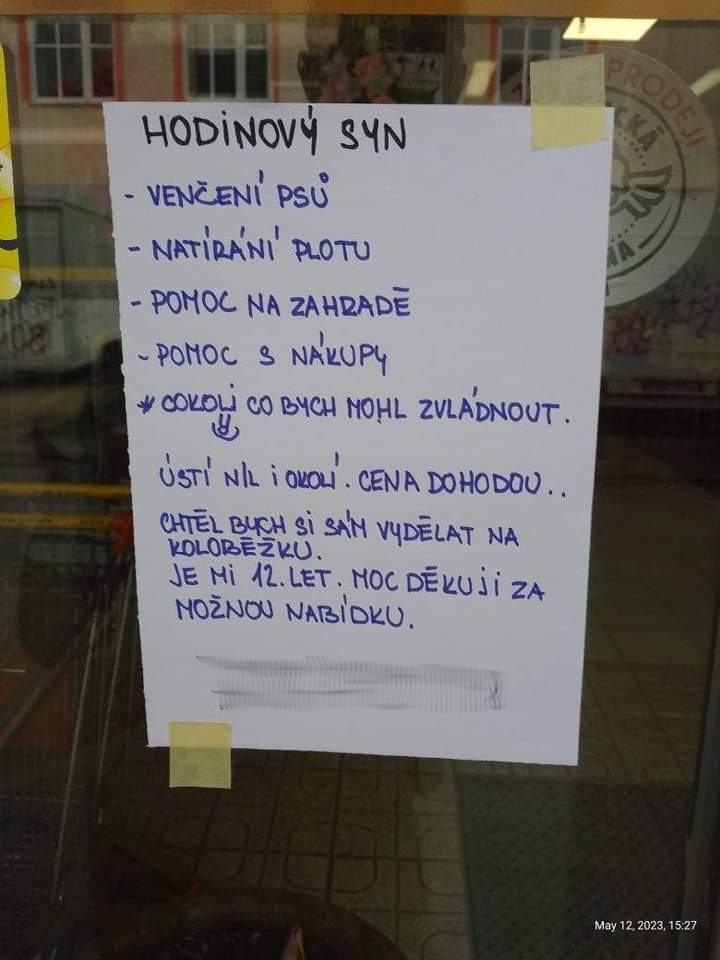 HODINOVÝ SYN
- VENČENÍ PSŮ
- NATÍRÁNÍ PLOTU
- POMOC NA ZAHRADĚ
- POMOC S NÁKUPY
* COKOLI CO BYCH MOHL ZVLÁDNOUT.
ÚSTÍ N/L i OKOLÍ. CENA DOHODOU..
CHTĚL BYCH SI SÁM VYDĚLAT NA
KOLOBĚŽKU.
JE MI 12. LET. MOC DĚKUJI ZA
MOŽNOU NABÍDKU.
PRODEJ
May 12, 2023, 15:27